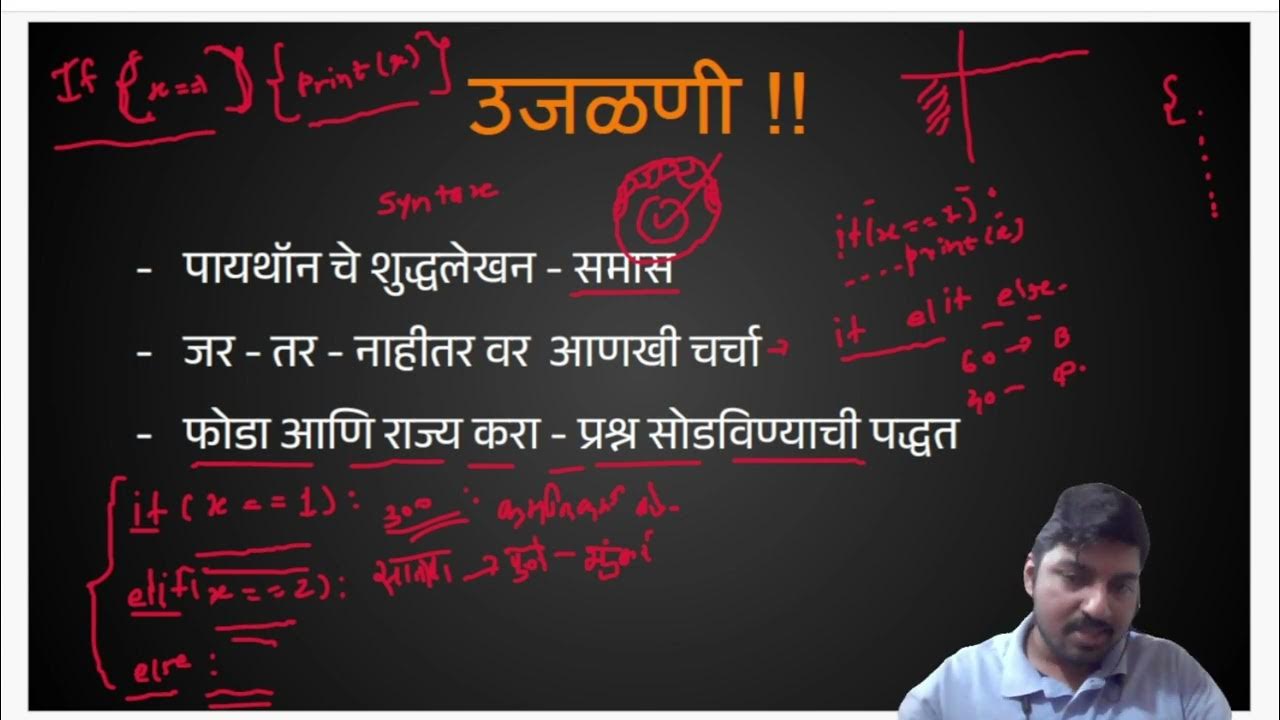 If {x==1} {print(x)}
उजळणी !!
Syntax
- पायथॉन चे शुद्धलेखन - समास
if(x==1):
....print(x)
- जर - तर - नाहीतर वर आणखी चर्चा →
if elif else.
60 → B
30 - P.
- फोडा आणि राज्य करा - प्रश्न सोडविण्याची पद्धत
if (x == 1): 300 :
elif(x == 2): → पुणे - मुंबई
else :